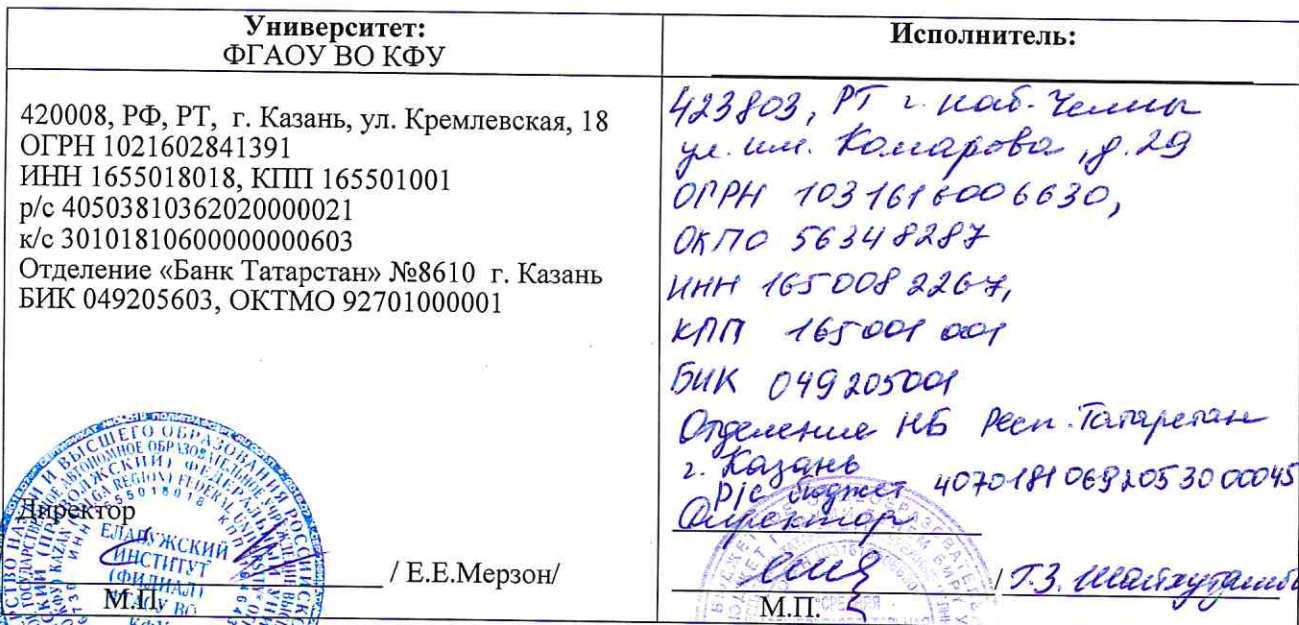 Университет:
ФГАОУ ВО КФУ
420008, РФ, РТ, г. Казань, ул. Кремлевская, 18
ОГРН 1021602841391
ИНН 1655018018, КПП 165501001
р/с 40503810362020000021
к/с 30101810600000000603
Отделение «Банк Татарстан» №8610 г. Казань
БИК 049205603, ОКТМО 92701000001
Директор
/ Е.Е.Мерзон/
М.П.
ЕЛАБУЖСКИЙ
ИНСТИТУТ
(ФИЛИАЛ)
КФУ
Исполнитель:
423803, РТ г. Наб. Челны
ул. им. Комарова, д. 29
ОГРН 1031616006630,
ОКПО 56348287
ИНН 1650082267,
КПП 165001001
БИК 049205001
Отделение НБ Респ. Татарстан
г. Казань
р/с бюджет 40701810692053000045
Директор
/ Г.З.
М.П.